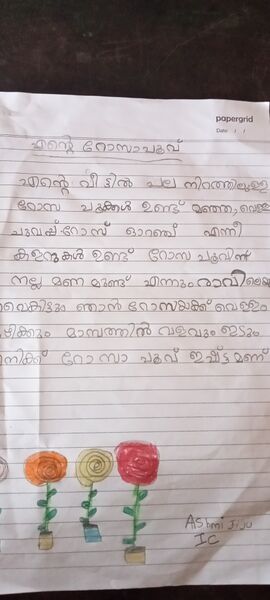 papergrid
Date: / /
എന്റെ റോസാപൂവ്
എന്റെ വീട്ടിൽ പല നിറത്തിലുള്ള
റോസ പൂക്കൾ ഉണ്ട് മഞ്ഞ, വെള്ള
ചുവപ്പ് റോസ് ഓറഞ്ച് എന്നീ
കളറുകൾ ഉണ്ട് റോസ പൂവിന്
നല്ല മണ മുണ്ട് എന്നും രാവിലെയു
വൈകിട്ടും ഞാൻ റോസയക്ക് വെള്ളം
ഴിക്കും മാസത്തിൽ വളവും ഇടും
നിക്ക് റോ സാ പൂവ് ഇഷ്ട്ട മണ്
AShmi Jiju
IC